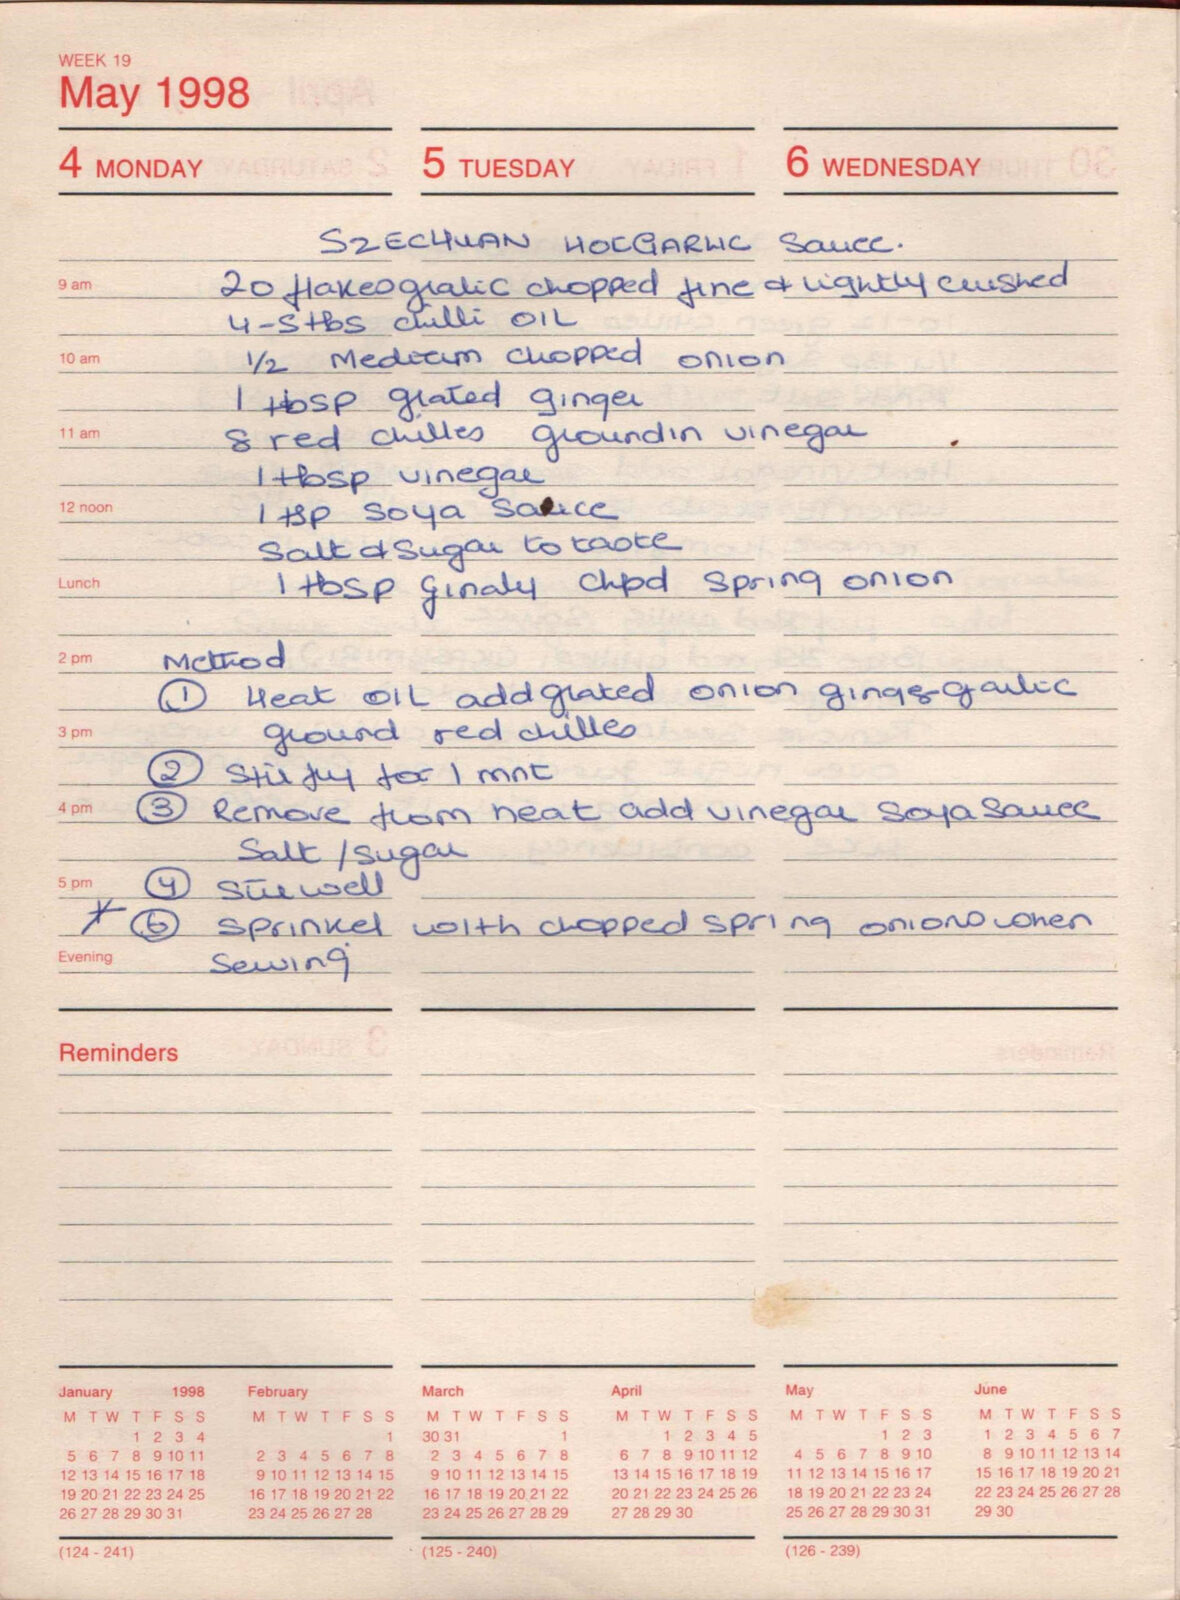 WEEK 19
May 1998
4 MONDAY 5 TUESDAY 6 WEDNESDAY
SZECHUAN HOTGARLIC Sauce.
9 am 20 flakeogralic chopped fine & lightly crushed
4-5 tbs chilli OIL
10 am 1/2 Medium chopped onion
1 tbsp grated ginger
11 am 8 red chilles groundin vinegar
1 tbsp vinegar
12 noon 1 tsp Soya Sauce
Salt & Sugar to taste
Lunch 1 tbsp finaly chpd spring onion
2 pm Method
① Heat OIL addgrated onion ginger garlic
3 pm ground red chilles
② Stir fry for 1 mnt
4 pm ③ Remove from heat add vinegar Soya Sauce
Salt / Sugar
5 pm ④ Stir well
⑤ Sprinkel with chopped spring onions when
Evening Serving
Reminders
January 1998 February March April May June
M T W T F S S M T W T F S S M T W T F S S M T W T F S S M T W T F S S M T W T F S S
1 2 3 4 1 30 31 1 1 2 3 4 5 1 2 3 1 2 3 4 5 6 7
5 6 7 8 9 10 11 2 3 4 5 6 7 8 2 3 4 5 6 7 8 6 7 8 9 10 11 12 4 5 6 7 8 9 10 8 9 10 11 12 13 14
12 13 14 15 16 17 18 9 10 11 12 13 14 15 9 10 11 12 13 14 15 13 14 15 16 17 18 19 11 12 13 14 15 16 17 15 16 17 18 19 20 21
19 20 21 22 23 24 25 16 17 18 19 20 21 22 16 17 18 19 20 21 22 20 21 22 23 24 25 26 18 19 20 21 22 23 24 22 23 24 25 26 27 28
26 27 28 29 30 31 23 24 25 26 27 28 23 24 25 26 27 28 29 27 28 29 30 25 26 27 28 29 30 31 29 30
(124 - 241) (125 - 240) (126 - 239)